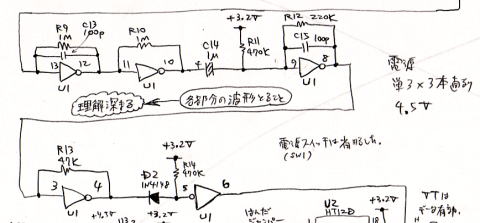 R9
1M
C13
100p
13
12
U1
R10
1M
11
10
U1
C14
1μ
+3.2V
R11
470K
R12 220K
C15 100p
9
8
U1
電源
単3×3本直列
4.5V
理解深まる
各部分の波形とること
R13
47K
3
4
U1
D2
1N4148
+3.2V
R14
470K
5
6
U1
電源スイッチは省略した。
(SW1)
はんだ
U2
HT12D
+3.2V
18
VTは
+3.2V